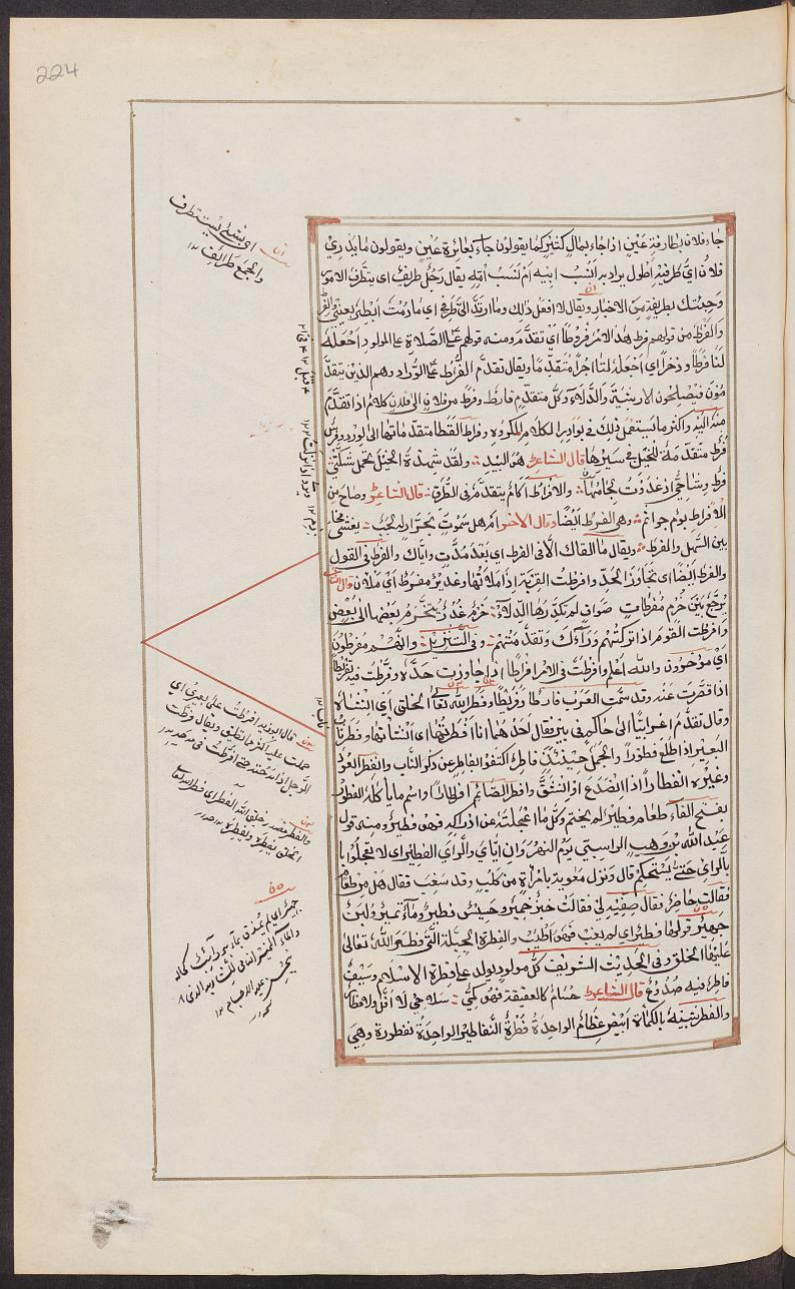 224
اي بشئ يستطرف
والجمع طرائف ١٢
جاء فلان بطارفة عين اذا جاء بمال كثير كما يقولون جاء بعائرة عين ويقولون ما يدري
فلان اي طرفيه اطول يراد به انسب ابيه ام نسب امه يقال رجل طريف اي يتطرف الامور
وجئتك بطريفة من الاخبار ويقال لا افعل ذلك وما ارتد الي طرفي اي ما دمت ابطئ بعيني والفرط
والفرط من قولهم فرط هذا الامر فروطا اي تقدم ومنه قولهم على الصلاة على المولود اجعله
لنا فرطا وذخرا اي اجعله لنا اجرا متقدما ويقال تقدم الفراط على الوراد وهم الذين يتقد
مون فيصلحون الارشية والدلاء وكل متقدم فارط وفرط من فلان الى فلان كلام اذا تقدم
منه اليه واكثر ما يستعمل ذلك في بوادر الكلام المكروه وفراط القطا متقدماتها الى الورد وفرس
فرط متقدمة للخيل في سيرها قال الشاعر هو لبيد ولقد شهدت الخيل تحمل شكتي
فرط وشاحي اذ غدوت لجامها والافراط آكام يتقدم في الطرق قال الشاعر وصاح من
الافراط بوم جواثم وهي الفرط ايضا وقال الاخر ام هل سموت بجرار له لجب يغشى مخارم
بين السهل والفرط ويقال ما القاك الا في الفرط اي بعد مدت واياك والفرط في القول
والفرط ايضا اي تجاوز الحد وافرطت القربة اذا ملأتها وغدير مفرط اي ملآن قال الشاعر
يرجع بين خرم مفرطات صواف لم تكدرها الدلاء خرم غدر يتخرم بعضها الى بعض
وافرطت القوم اذا تركتهم وراءك وتقدمتهم وفي التنزيل وانهم مفرطون
اي مؤخرون والله اعلم وافرطت في الامر افراطا اذا جاوزت حده وفرطت فيه تفريطا
اذا قصرت عنه وقد سمت العرب فارطا وفريطا وفطر الله تعالى الخلق اي انشاه
وقال تقدم اعرابيان الى حاكم في بئر فقال احدهما انا افطرتها اي انشأتها وفطر ناب
البعير اذا طلع فطورا والجمل حينئذ فاطر اكتفوا بالفاطر عن ذكر الناب وانفطر العود
وغيره انفطارا اذا انصدع او انشق وافطر الصائم افطارا واسم ما يأكله الفطور
بفتح الفاء طعام فطير لم يختم وكل ما عجلته عن ادراكه فهو فطير ومنه قول
عبد الله بن وهب الراسبي يوم النهروان اياي والراي الفطير اي لا تعجلوا با
بالراي حتى يستحكم قال ونزل معوية بامراة من كلب وقد سغب فقال هل من طعام
فقالت حاضر فقال صفيه لي فقالت خبز خمير وحيس فطير وماء نمير ولبن
جهير قولها فطير اي لم يدب فهو اطيب والفطرة الجبلة التي فطر الله تعالى
عليها الخلق وفي الحديث الشريف كل مولود يولد على فطرة الاسلام وسيف
فاطر فيه صدوع قال الشاعر حسام كالعقيقة فهو كمعي سلاحي لا افل ولا فطارا
والفطر يشبه بالكمأة ابيض عظام الواحدة فطرة النفاطير الواحدة نفطورة وهي
قال ابو زيد افرطت على بعيري اي
حملت عليه اكثر مما يطيق ويقال فرطت
الرجل اذا مدحته حتى افرطت في مدحه
والفطر مصدر خلق الله الفطر اي فطر الله تعالى
الخلق يفطره ويفطره